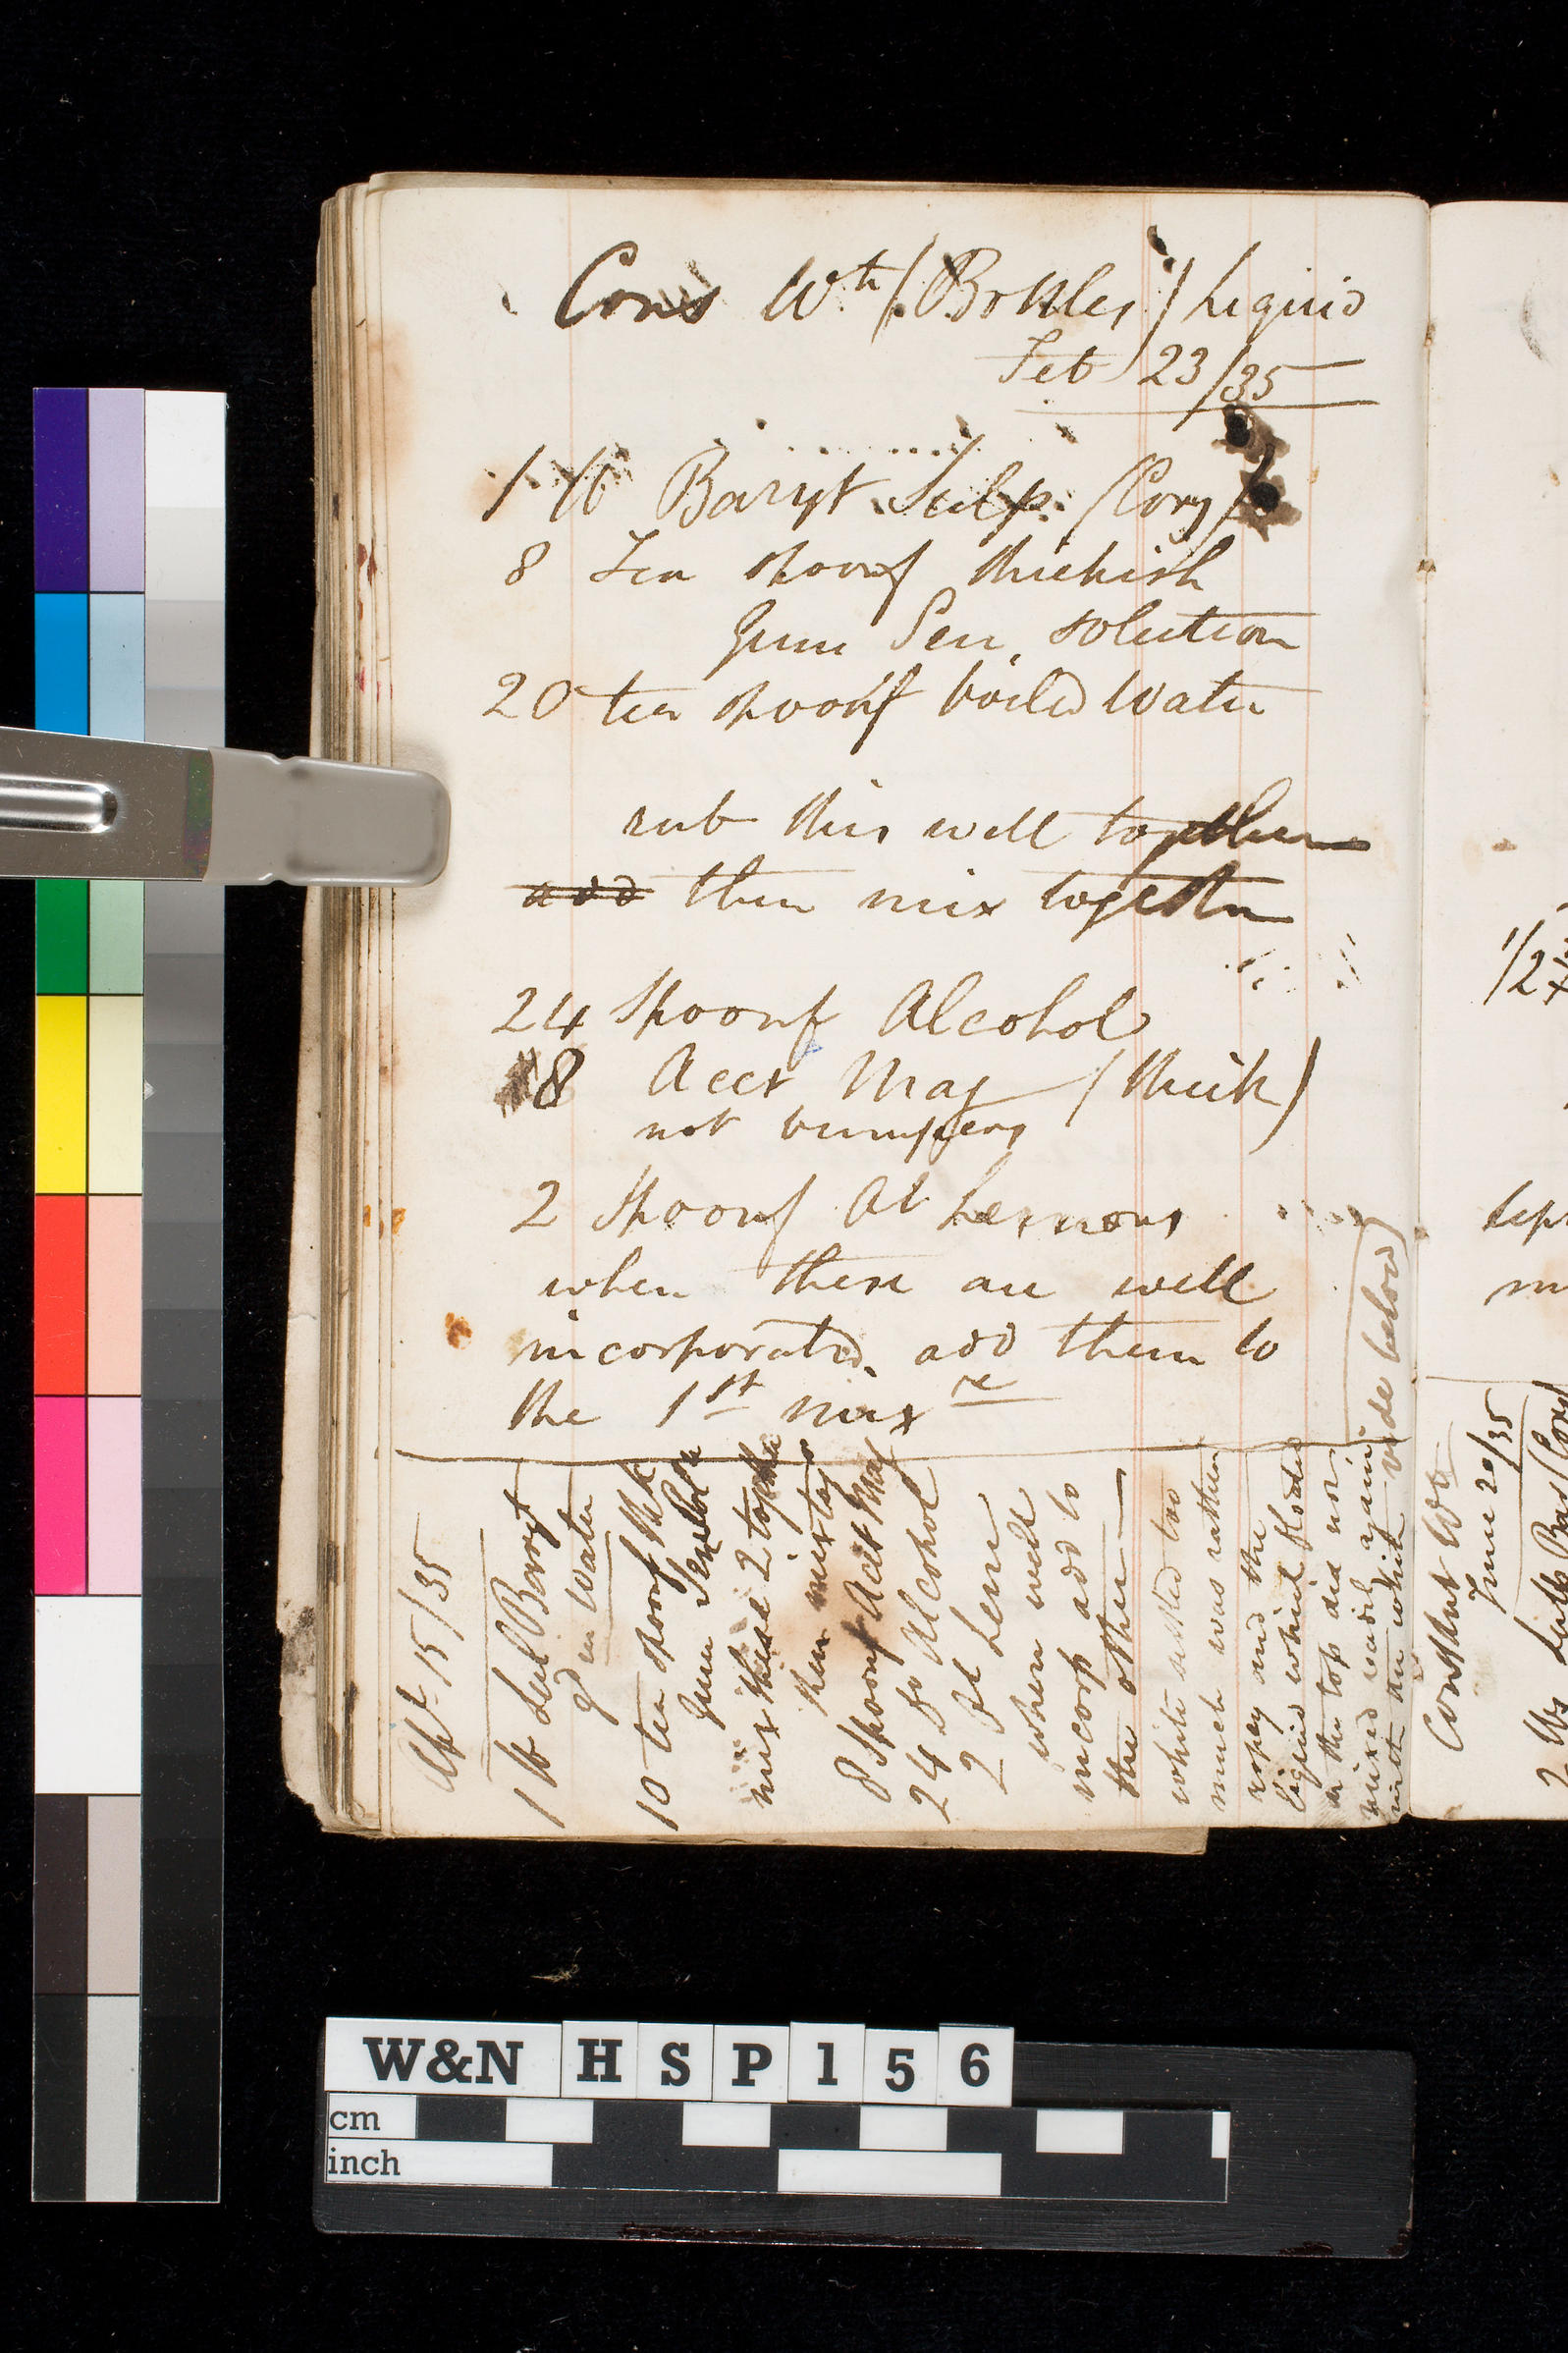 Cons Wth (Bottles) Liquid
Feb 23/35
1 lb Baryt Sulp. (Cory)
8 Tea spoonf thickish
Gum Sen. solution
20 tea spoonf boiled Water
rub this well together
add then mix together
24 Spoonf Alcohol
8 Acet Mag (thick)
not bumpers
2 Spoonf Ol Lemons
when these are well
incorporated. add them to
the 1st mixre
Apl 15/35
1 lb Sul Baryt
gd in Water
10 tea spoonf thk
Gum Sen Soln
mix these 2 together
then mix tog
8 Spoonf Acet Mag
24 Do Alcohol
2 Ol Lem
when well
incorp add to
the other
white settled too
much was rather
ropey and the
liquid which floated
on the top did not
mixed readily again
with the white vide below)
Constant Wt
June 20/35
1/2
2 lbs Sulp Bas (Cory
W&N HSP156
cm
inch